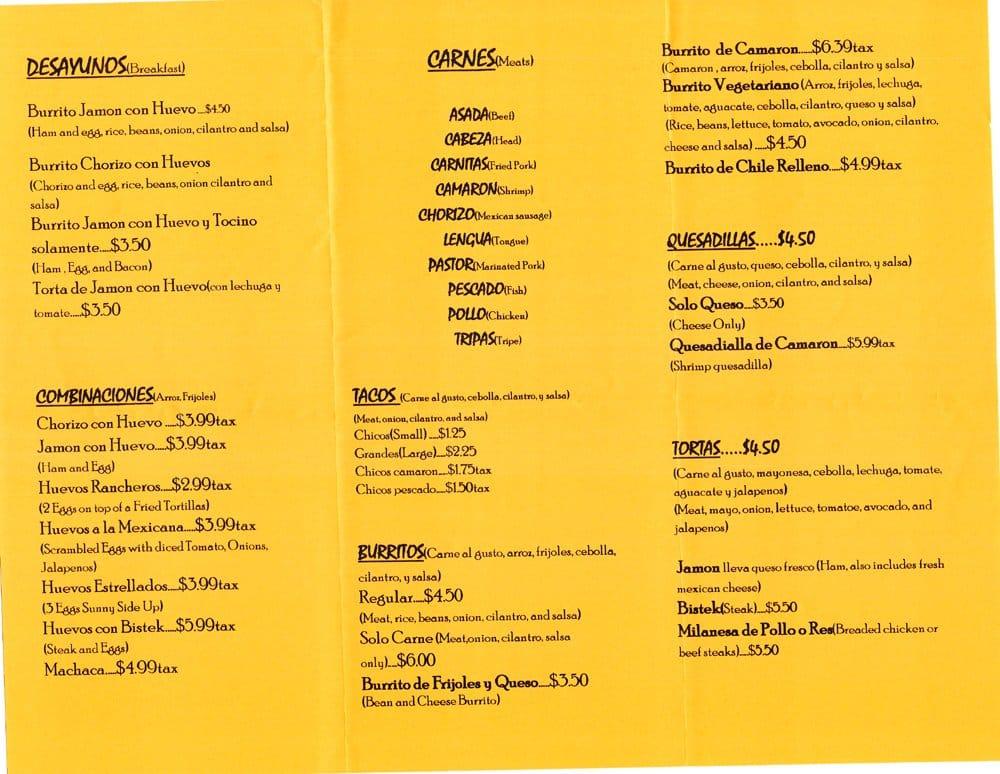 DESAYUNOS(Breakfast)
Burrito Jamon con Huevo...$4.50
(Ham and egg, rice, beans, onion, cilantro and salsa)
Burrito Chorizo con Huevos
(Chorizo and egg, rice, beans, onion cilantro and
salsa)
Burrito Jamon con Huevo y Tocino
solamente.....$3.50
(Ham , Egg, and Bacon)
Torta de Jamon con Huevo(con lechuga y
tomate.....$3.50
COMBINACIONES(Arroz, Frijoles)
Chorizo con Huevo .....$3.99tax
Jamon con Huevo.....$3.99tax
(Ham and Egg)
Huevos Rancheros.....$2.99tax
(2 Eggs on top of a Fried Tortillas)
Huevos a la Mexicana.....$3.99tax
(Scrambled Eggs with diced Tomato, Onions,
Jalapenos)
Huevos Estrellados.....$3.99tax
(3 Eggs Sunny Side Up)
Huevos con Bistek.....$5.99tax
(Steak and Eggs)
Machaca.....$4.99tax
CARNES(Meats)
ASADA(Beef)
CABEZA(Head)
CARNITAS(Fried Pork)
CAMARON(Shrimp)
CHORIZO(Mexican sausage)
LENGUA(Tongue)
PASTOR(Marinated Pork)
PESCADO(Fish)
POLLO(Chicken)
TRIPAS(Tripe)
TACOS (Carne al gusto, cebolla, cilantro, y salsa)
(Meat, onion, cilantro, and salsa)
Chicos(Small) .....$1.25
Grandes(Large).....$2.25
Chicos camaron.....$1.75tax
Chicos pescado.....$1.50tax
BURRITOS(Carne al gusto, arroz, frijoles, cebolla,
cilantro, y salsa)
Regular.....$4.50
(Meat, rice, beans, onion, cilantro, and salsa)
Solo Carne (Meat,onion, cilantro, salsa
only)....$6.00
Burrito de Frijoles y Queso.....$3.50
(Bean and Cheese Burrito)
Burrito de Camaron.....$6.39tax
(Camaron , arroz, frijoles, cebolla, cilantro y salsa)
Burrito Vegetariano (Arroz, frijoles, lechuga,
tomate, aguacate, cebolla, cilantro, queso y salsa)
(Rice, beans, lettuce, tomato, avocado, onion, cilantro,
cheese and salsa) .....$4.50
Burrito de Chile Relleno.....$4.99tax
QUESADILLAS.....$4.50
(Carne al gusto, queso, cebolla, cilantro, y salsa)
(Meat, cheese, onion, cilantro, and salsa)
Solo Queso.....$3.50
(Cheese Only)
Quesadialla de Camaron.....$5.99tax
(Shrimp quesadilla)
TORTAS.....$4.50
(Carne al gusto, mayonesa, cebolla, lechuga, tomate,
aguacate y jalapenos)
(Meat, mayo, onion, lettuce, tomatoe, avocado, and
jalapenos)
Jamon lleva queso fresco (Ham, also includes fresh
mexican cheese)
Bistek(Steak)....$5.50
Milanesa de Pollo o Res(Breaded chicken or
beef steaks)....$5.50